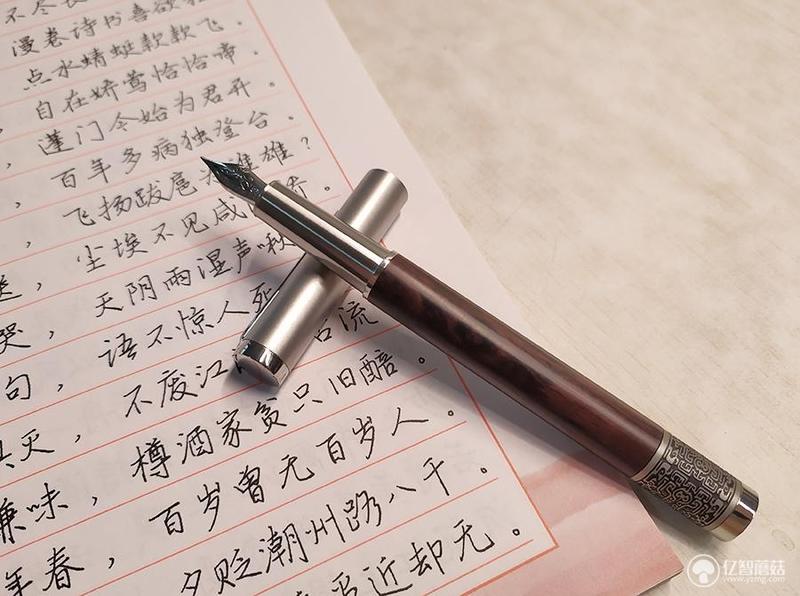 不尽长
漫卷诗书喜欲狂
点水蜻蜓款款飞。
，自在娇莺恰恰啼。
，蓬门今始为君开。
，百年多病独登台。
，飞扬跋扈为谁雄？
送，尘埃不见咸
哭，天阴雨湿声啾
句，语不惊人死
俱灭，不废江 流
兼味，樽酒家贫只旧醅。
年春，百岁曾无百岁人。
夕贬潮州路八千。
近却无。
亿智蘑菇
www.yzmg.com